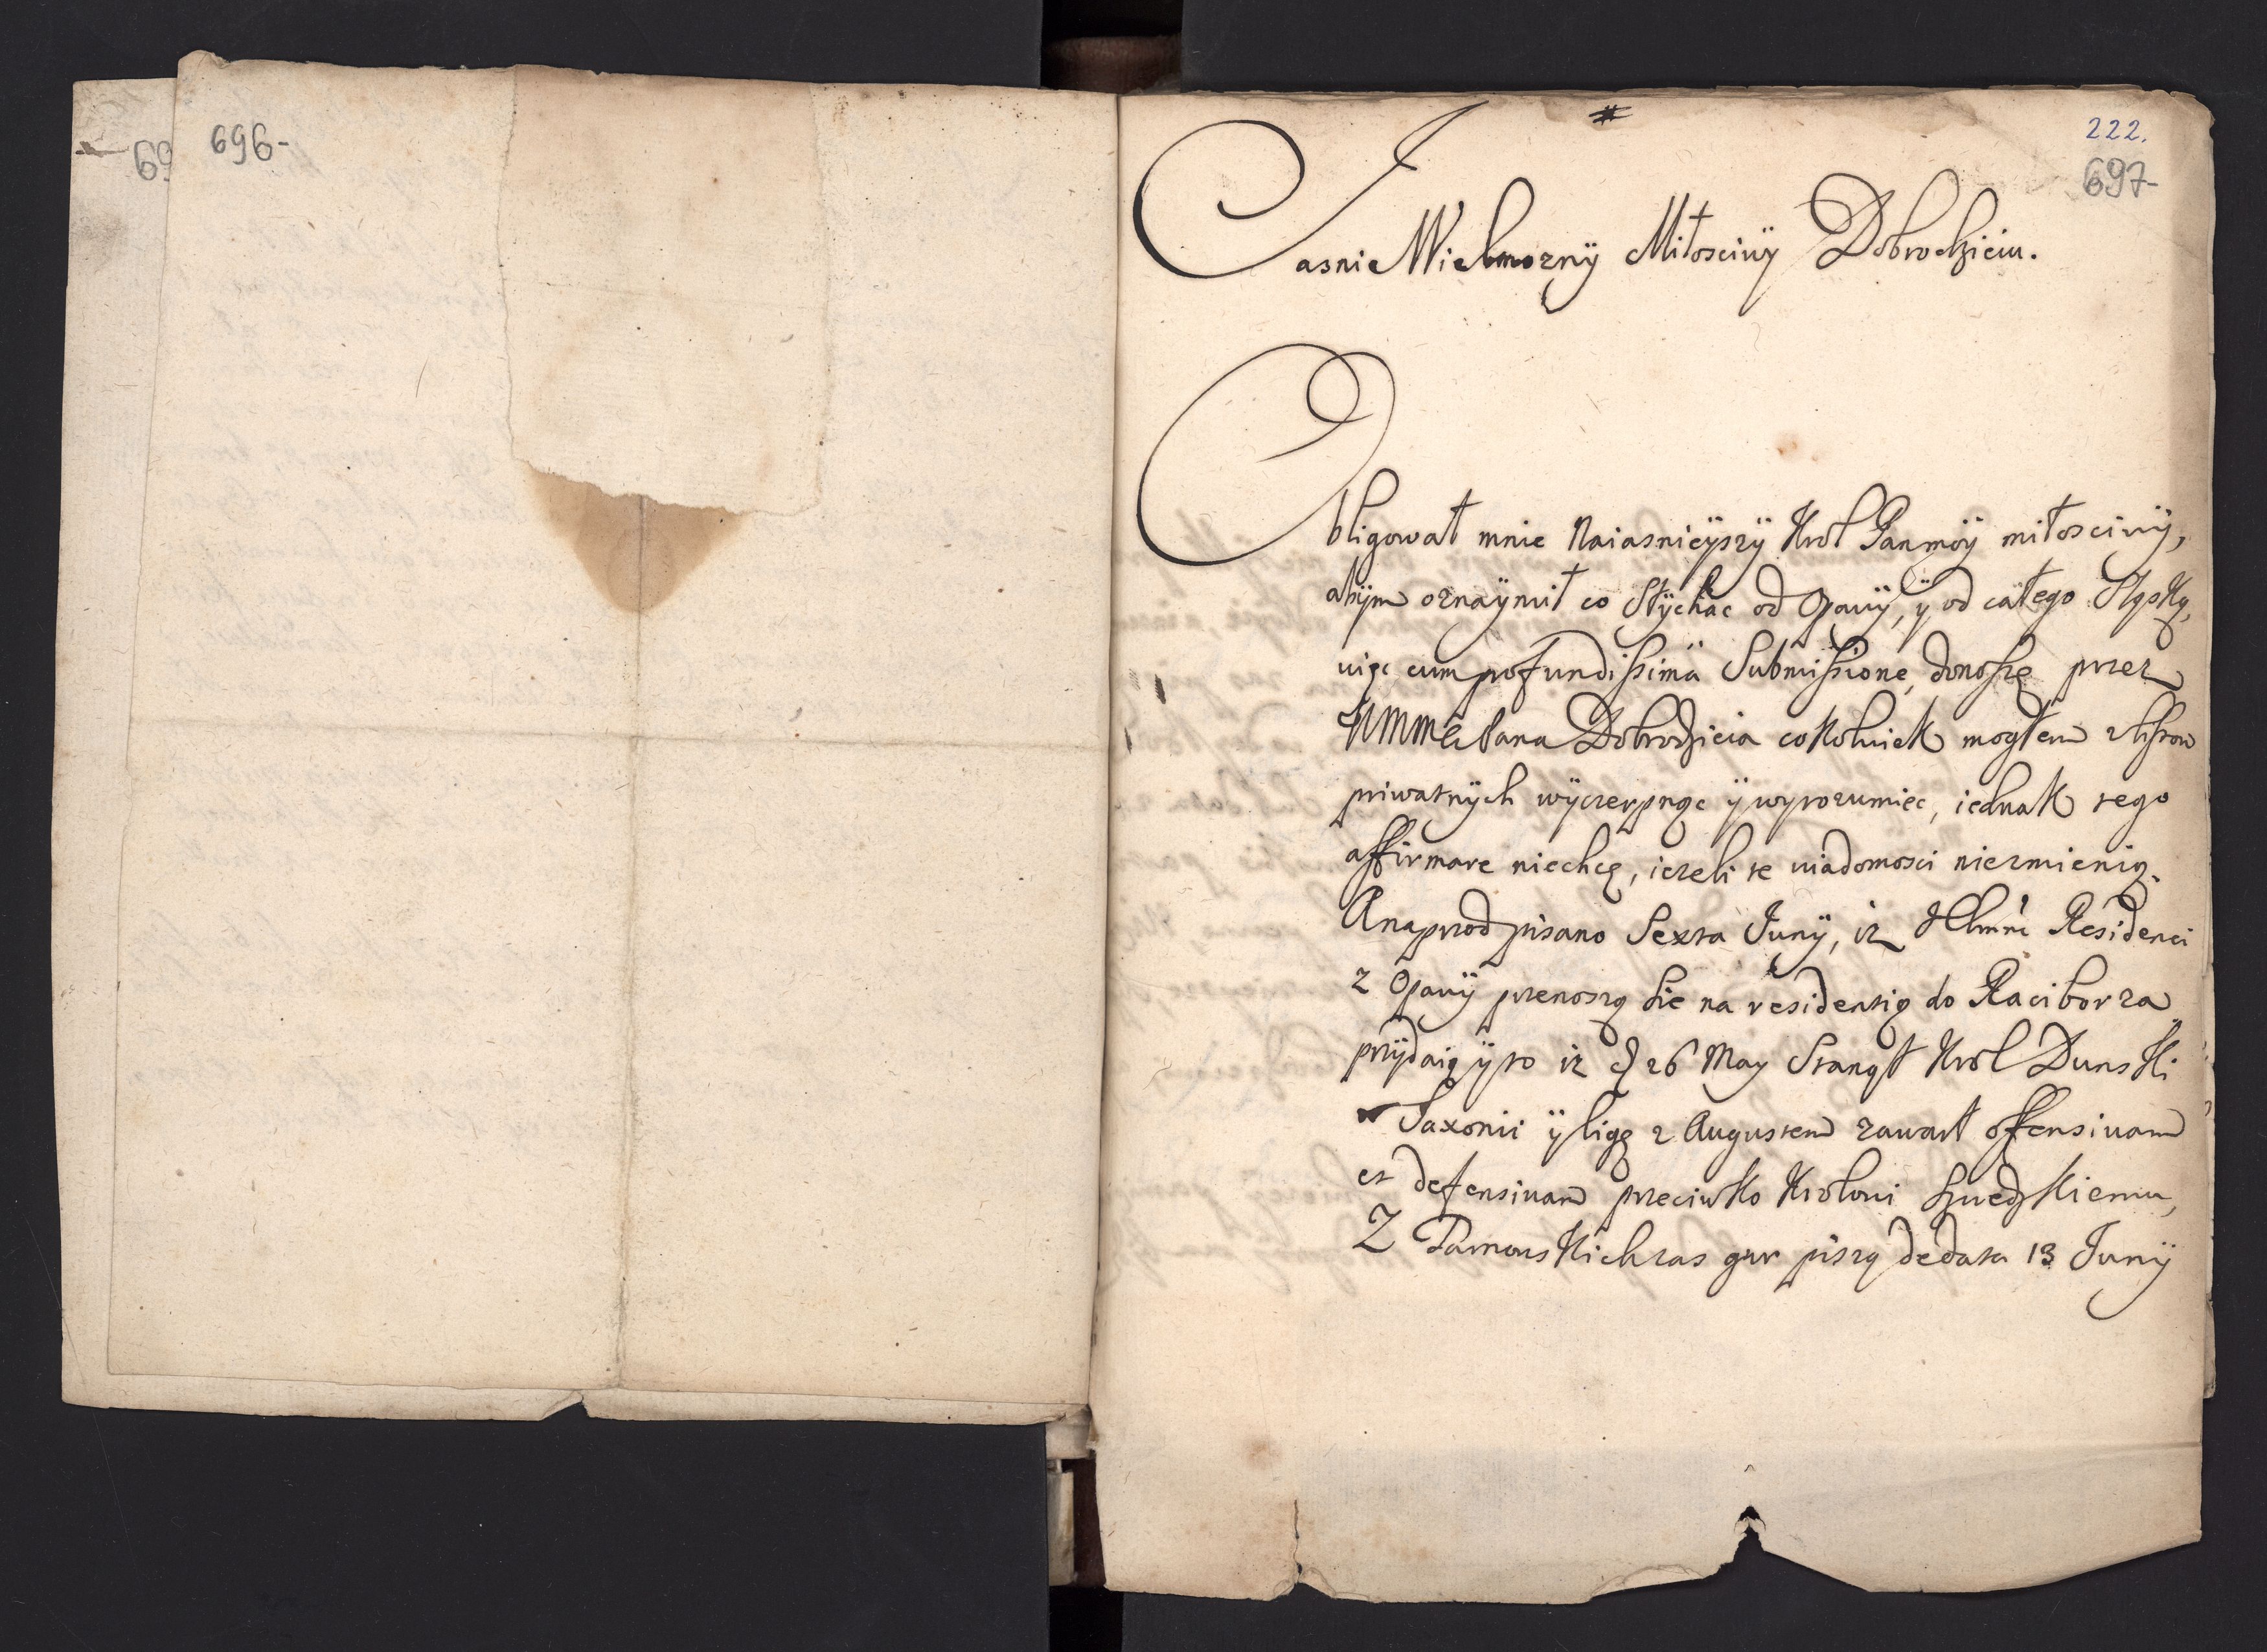 69
696-
#
222.
697-
Jasnie Wielmozny Miłosciwy Dobrodzieiu.
Obligował mnie Naiasnieyszÿ Krol Pan moÿ miłosciwÿ,
abÿm oznaÿmił co Słÿchac od Opawÿ, ÿ od całego Sląską,
więc cum profundissima Submissione, donoszę przez
Pana Dobrodzieia cokolwiek mogłem z lissow
priwatnÿch wÿczerpnąc ÿ wyrozumiec, iednak tego
affirmare niechcę, iezeli te wiadomosci niezmienią.
A naprzod pisano Sexta Junÿ, iz Residenci
z Opawÿ przenoszą sie na residentią do Raciborza
przÿdaią ÿ to iz d 26 May Stanął Krol Dunski
w Saxonii ÿ ligę z Augustem zawarł offensivam
et defensivam przeciwko Krolowi Szwedzkiemu,
Z Tarnouskich zas gur piszą de data 13 Junÿ